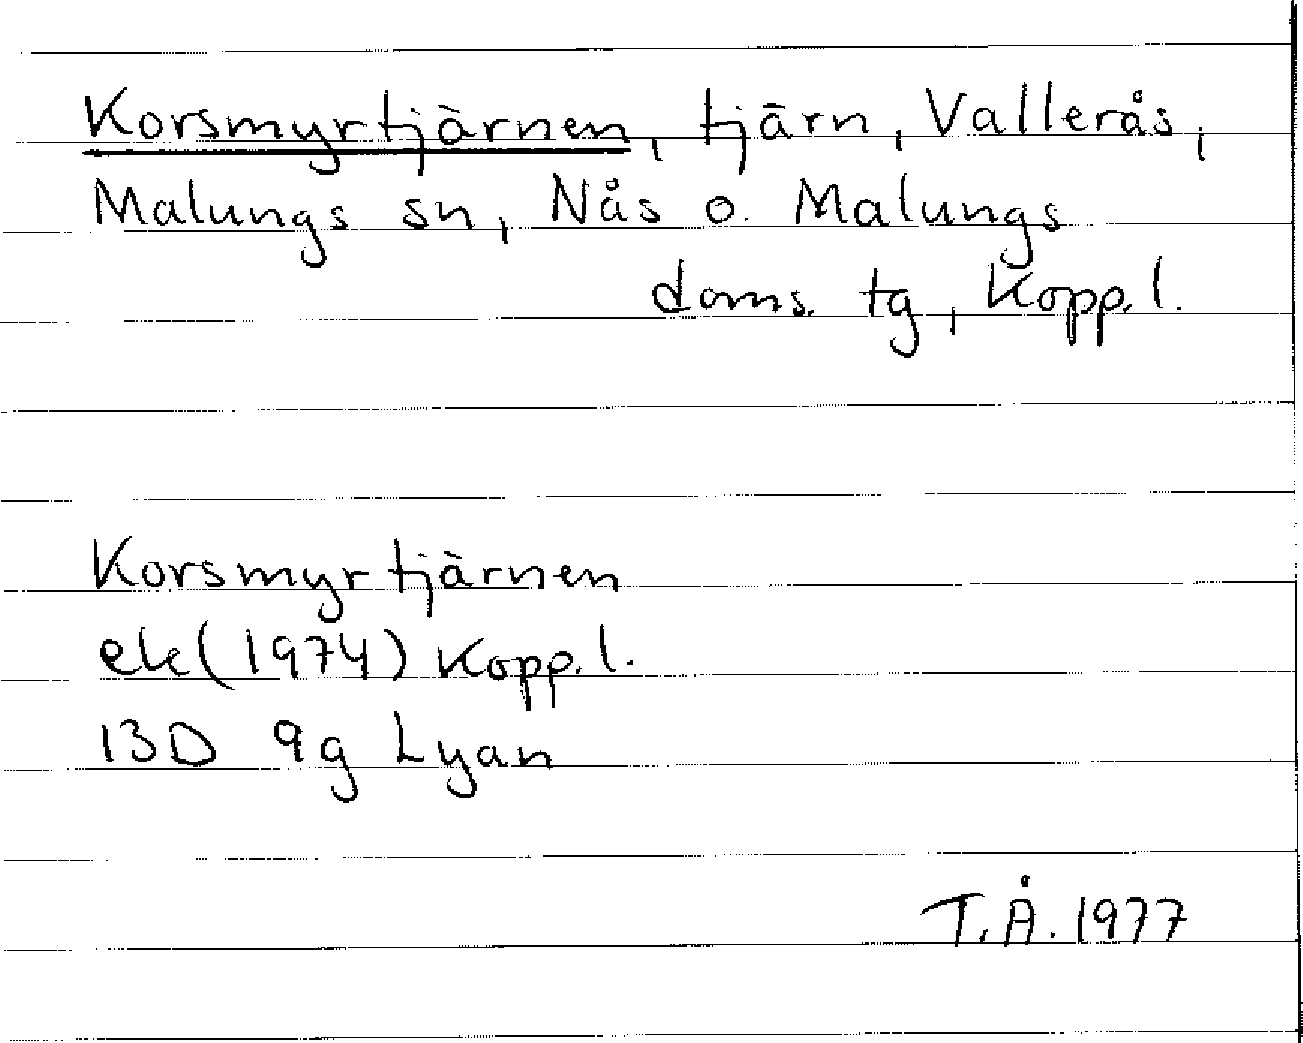 Korsmyrtjärnen, tjärn, Vallerås,
Malungs sn, Nås o. Malungs
doms. tg, Kopp. l.
Korsmyrtjärnen
ek (1974) Kopp. l.
13D 9g Lyan
T.Å. 1977